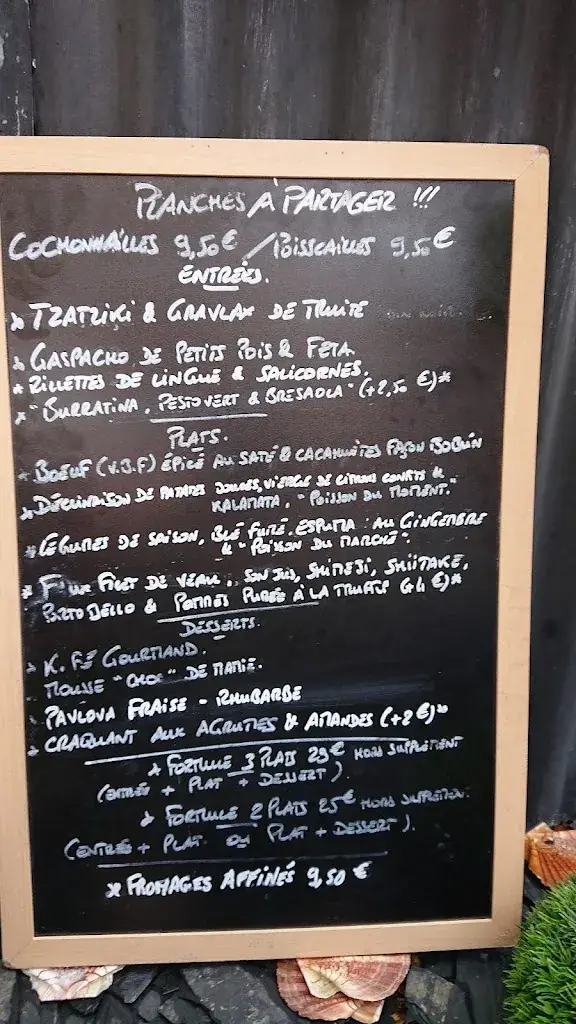 PLANCHES À PARTAGER !!!
COCHONNAILLES 9,50€ / POISSCAILLES 9,50€
ENTRÉES.
* TZATZIKI & GRAVLAX DE TRUITE
* GASPACHO DE PETITS POIS & FETA.
* RILLETTES DE LINGUE & SALICORNES.
* "BURRATINA, PESTO VERT & BRESAOLA" (+2,50 €)*
PLATS.
* BOEUF (V.B.F) ÉPICÉ AU SATÉ & CACAHUÈTES FAÇON BOBUN
* DÉCLINAISON DE PATATES DOUCES, VIERGE DE CITRONS CONFITS &
KALAMATA, "POISSON DU MOMENT."
* LÉGUMES DE SAISON, BLÉ FUMÉ, ESPUMA AU GINGEMBRE
& "POISSON DU MARCHÉ".
* FILET DE VEAU, SON JUS, SHIMEJI, SHIITAKE,
PORTOBELLO & POMMES PURÉE À LA TRUFFE (+4 €)*
DESSERTS.
* K.FÉ GOURMAND.
MOUSSE "CHOC" DE MAMIE.
* PAVLOVA FRAISE - RHUBARBE
* CRAQUANT AUX AGRUMES & AMANDES (+2€)*
* FORMULE 3 PLATS 29€ HORS SUPPLÉMENT
(ENTRÉE + PLAT + DESSERT).
* FORMULE 2 PLATS 25€ HORS SUPPLÉMENT.
(ENTRÉE + PLAT OU PLAT + DESSERT).
* FROMAGES AFFINÉS 9,50 €